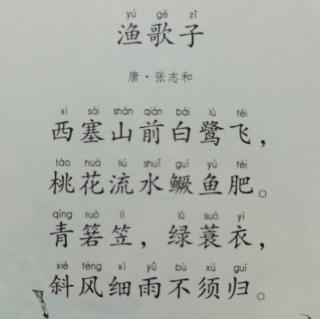 yú gē zǐ
渔歌子
唐·张志和
xī sài shān qián bái lù fēi
西塞山前白鹭飞，
táo huā liú shuǐ guì yú féi
桃花流水鳜鱼肥。
qīng ruò lì lǜ suō yī
青箬笠，绿蓑衣，
xié fēng xì yǔ bù xū guī
斜风细雨不须归。